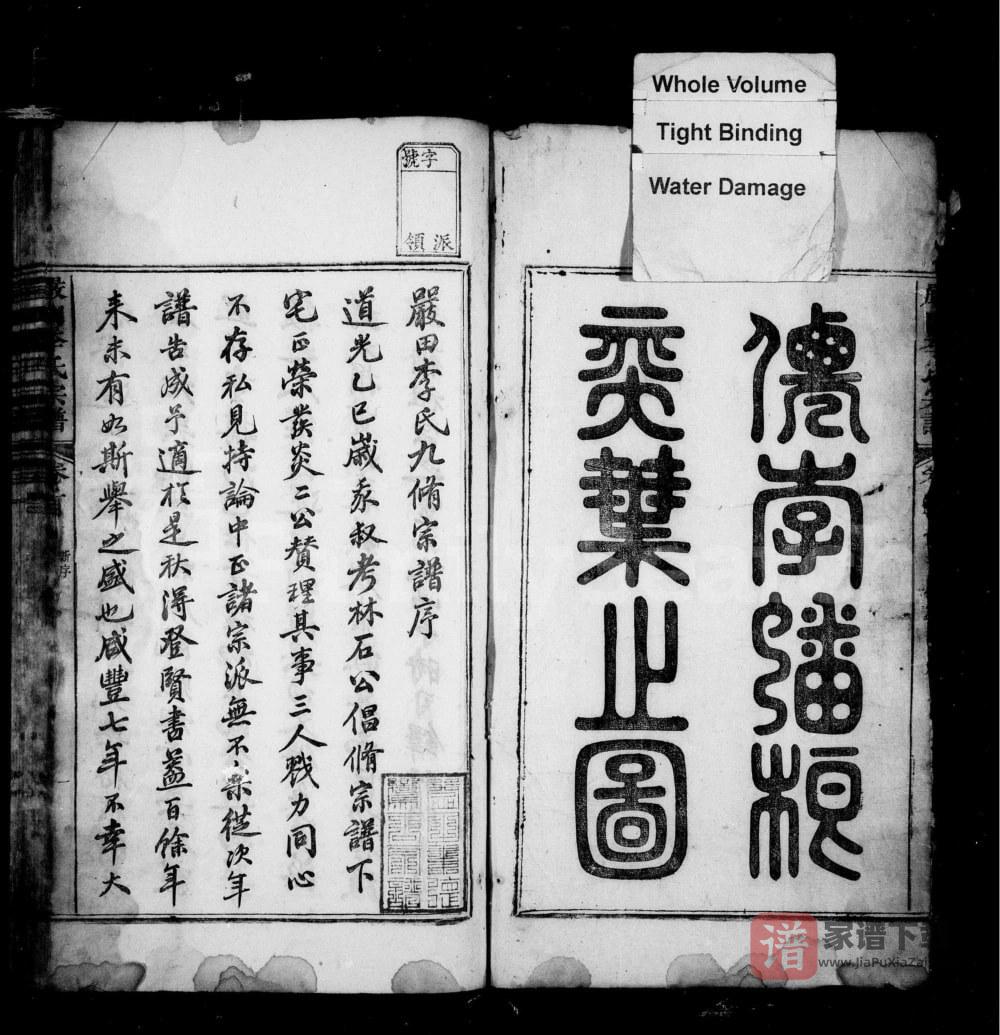 Whole Volume
Tight Binding
Water Damage
僊李蟠根
奕葉止圖
字號
派領
嚴田李氏九脩宗譜序
道光乙巳歲叔考林石公倡脩宗譜下
宅正榮發炎二公贊理其事三人戮力同心
不存私見持論中正諸宗派無不樂從次年
譜告成予適於是秋得登賢書蓋百餘年
来未有如斯舉之盛也咸豐七年不幸大
家谱下
www.JiaPuXiaZai
谱